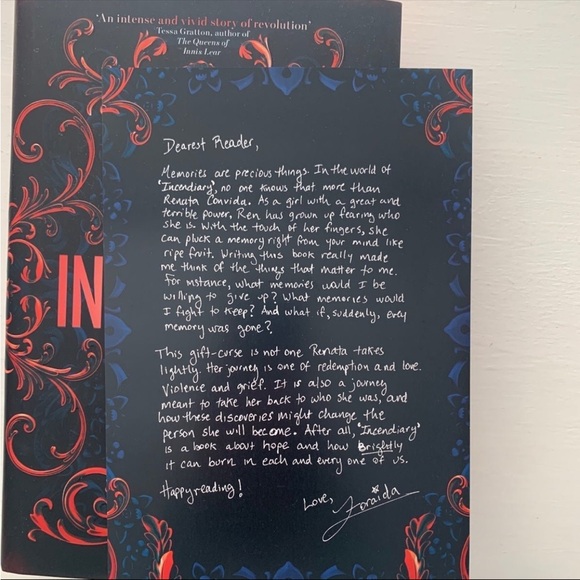 'An intense and vivid story of revolution'
Tessa Gratton, author of
The Queens of
Innis Lear
IN
Dearest Reader,
Memories are precious things. In the world of
'Incendiary', no one knows that more than
Renata Convida. As a girl with a great and
terrible power, Ren has grown up fearing who
she is. With the touch of her fingers, she
can pluck a memory right from your mind like
ripe fruit. Writing this book really made
me think of the things that matter to me.
For instance, what memories would I be
willing to give up? What memories would
I fight to keep? And what if, suddenly, every
memory was gone?
This gift-curse is not one Renata takes
lightly. Her journey is one of redemption and love.
Violence and grief. It is also a journey
meant to take her back to who she was, and
how these discoveries might change the
person she will become. After all, 'Incendiary'
is a book about hope and how Brightly
it can burn in each and every one of us.
Happy reading!
Love,
Zoraida